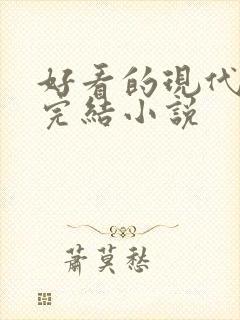 好看的現代
完結小說
蕭莫愁